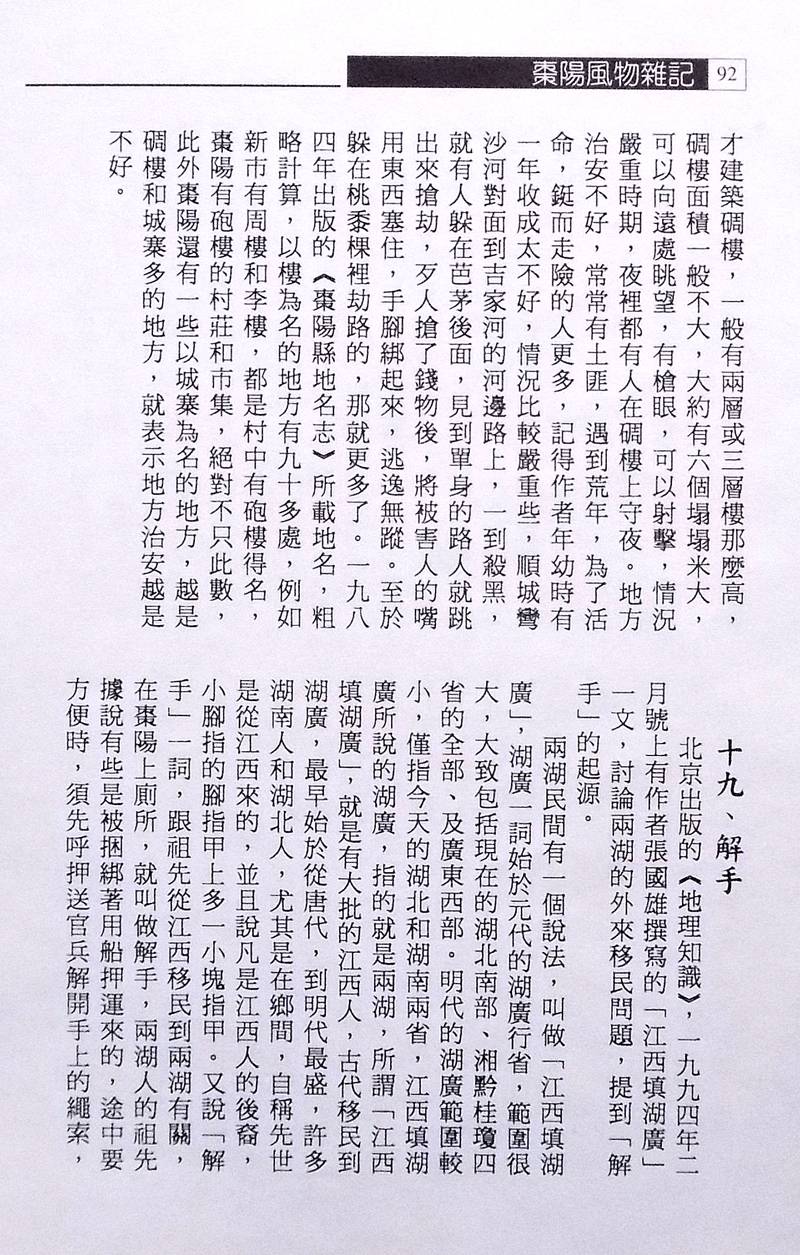 棗陽風物雜記 92
才建築碉樓，一般有兩層或三層樓那麼高，
碉樓面積一般不大，大約有六個塌塌米大，
可以向遠處眺望，有槍眼，可以射擊，情況
嚴重時期，夜裡都有人在碉樓上守夜。地方
治安不好，常常有土匪，遇到荒年，為了活
命，鋌而走險的人更多，記得作者年幼時有
一年收成太不好，情況比較嚴重些，順城彎
沙河對面到吉家河的河邊路上，一到殺黑，
就有人躲在芭茅後面，見到單身的路人就跳
出來搶劫，歹人搶了錢物後，將被害人的嘴
用東西塞住，手腳綁起來，逃逸無蹤。至於
躲在桃黍棵裡劫路的，那就更多了。一九八
四年出版的《棗陽縣地名志》所載地名，粗
略計算，以樓為名的地方有九十多處，例如
新市有周樓和李樓，都是村中有砲樓得名，
棗陽有砲樓的村莊和市集，絕對不只此數，
此外棗陽還有一些以城寨為名的地方，越是
碉樓和城寨多的地方，就表示地方治安越是
不好。
十九、解手
北京出版的《地理知識》，一九九四年二
月號上有作者張國雄撰寫的「江西填湖廣」
一文，討論兩湖的外來移民問題，提到「解
手」的起源。
兩湖民間有一個說法，叫做「江西填湖
廣」，湖廣一詞始於元代的湖廣行省，範圍很
大，大致包括現在的湖北南部、湘黔桂瓊四
省的全部、及廣東西部。明代的湖廣範圍較
小，僅指今天的湖北和湖南兩省，江西填湖
廣所說的湖廣，指的就是兩湖，所謂「江西
填湖廣」，就是有大批的江西人，古代移民到
湖廣，最早始於從唐代，到明代最盛，許多
湖南人和湖北人，尤其是在鄉間，自稱先世
是從江西來的，並且說凡是江西人的後裔，
小腳指的腳指甲上多一小塊指甲。又說「解
手」一詞，跟祖先從江西移民到兩湖有關，
在棗陽上廁所，就叫做解手，兩湖人的祖先
據說有些是被捆綁著用船押運來的，途中要
方便時，須先呼押送官兵解開手上的繩索，